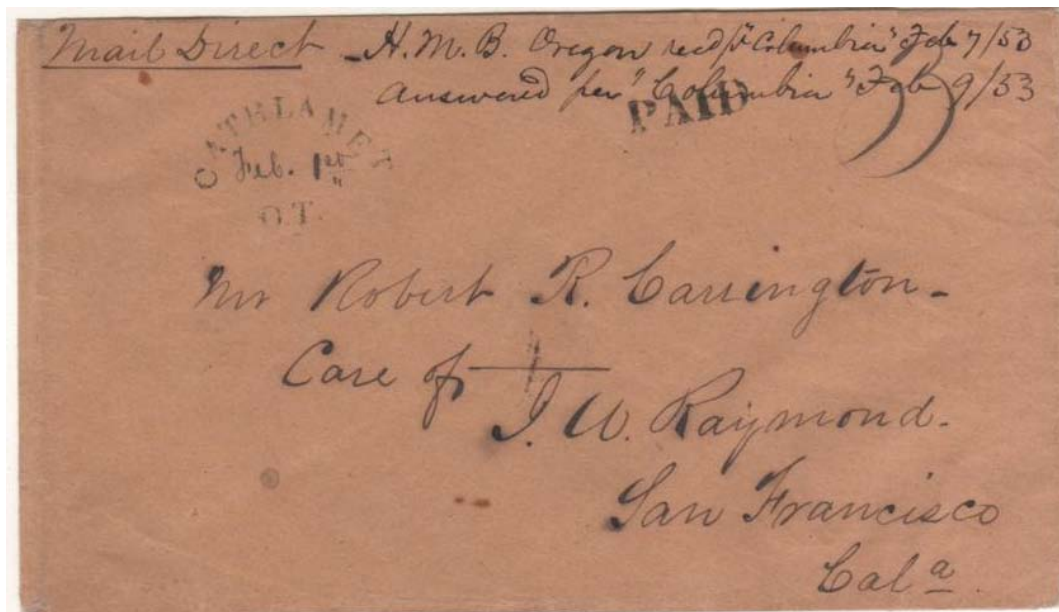 Mail Direct - H. M. B. Oregon recd pr "Columbia" Feb 7/53
answered per "Columbia" Feb 9/53
PAID
CATHLAMET
Feb. 1st
O.T.
Mr Robert R. Carrington -
Care of
I. W. Raymond.
San Francisco
Cala.